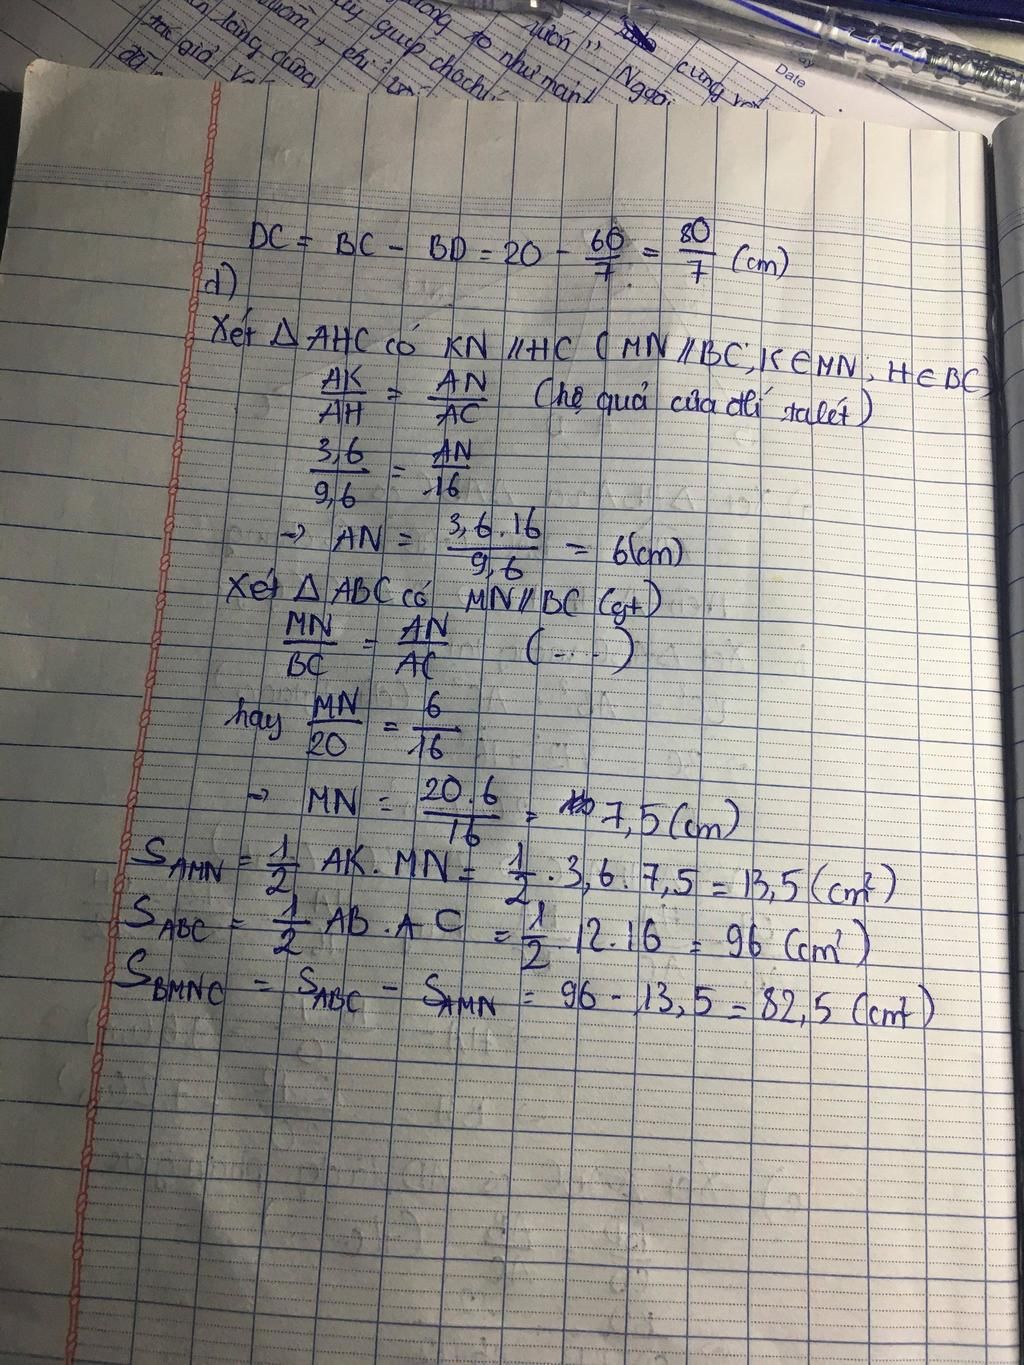 ườn,,
Date
Ngoài
cũng
giúp
như
DC = BC - BD = 20 - 60/7 = 80/7 (cm)
d)
Xét Δ AHC có KN // HC ( MN // BC, K ∈ MN, H ∈ BC)
AK/AH = AN/AC (hệ quả của đlí talét)
3,6/9,6 = AN/16
→ AN = 3,6.16/9,6 = 6(cm)
Xét Δ ABC có MN // BC (gt)
MN/BC = AN/AC (...)
hay MN/20 = 6/16
→ MN = 20.6/16 = 7,5(cm)
S_AMN = 1/2 AK.MN = 1/2 . 3,6 . 7,5 = 13,5 (cm²)
S_ABC = 1/2 AB.AC = 1/2 12.16 = 96 (cm²)
S_BMNC = S_ABC - S_AMN = 96 - 13,5 = 82,5 (cm²)